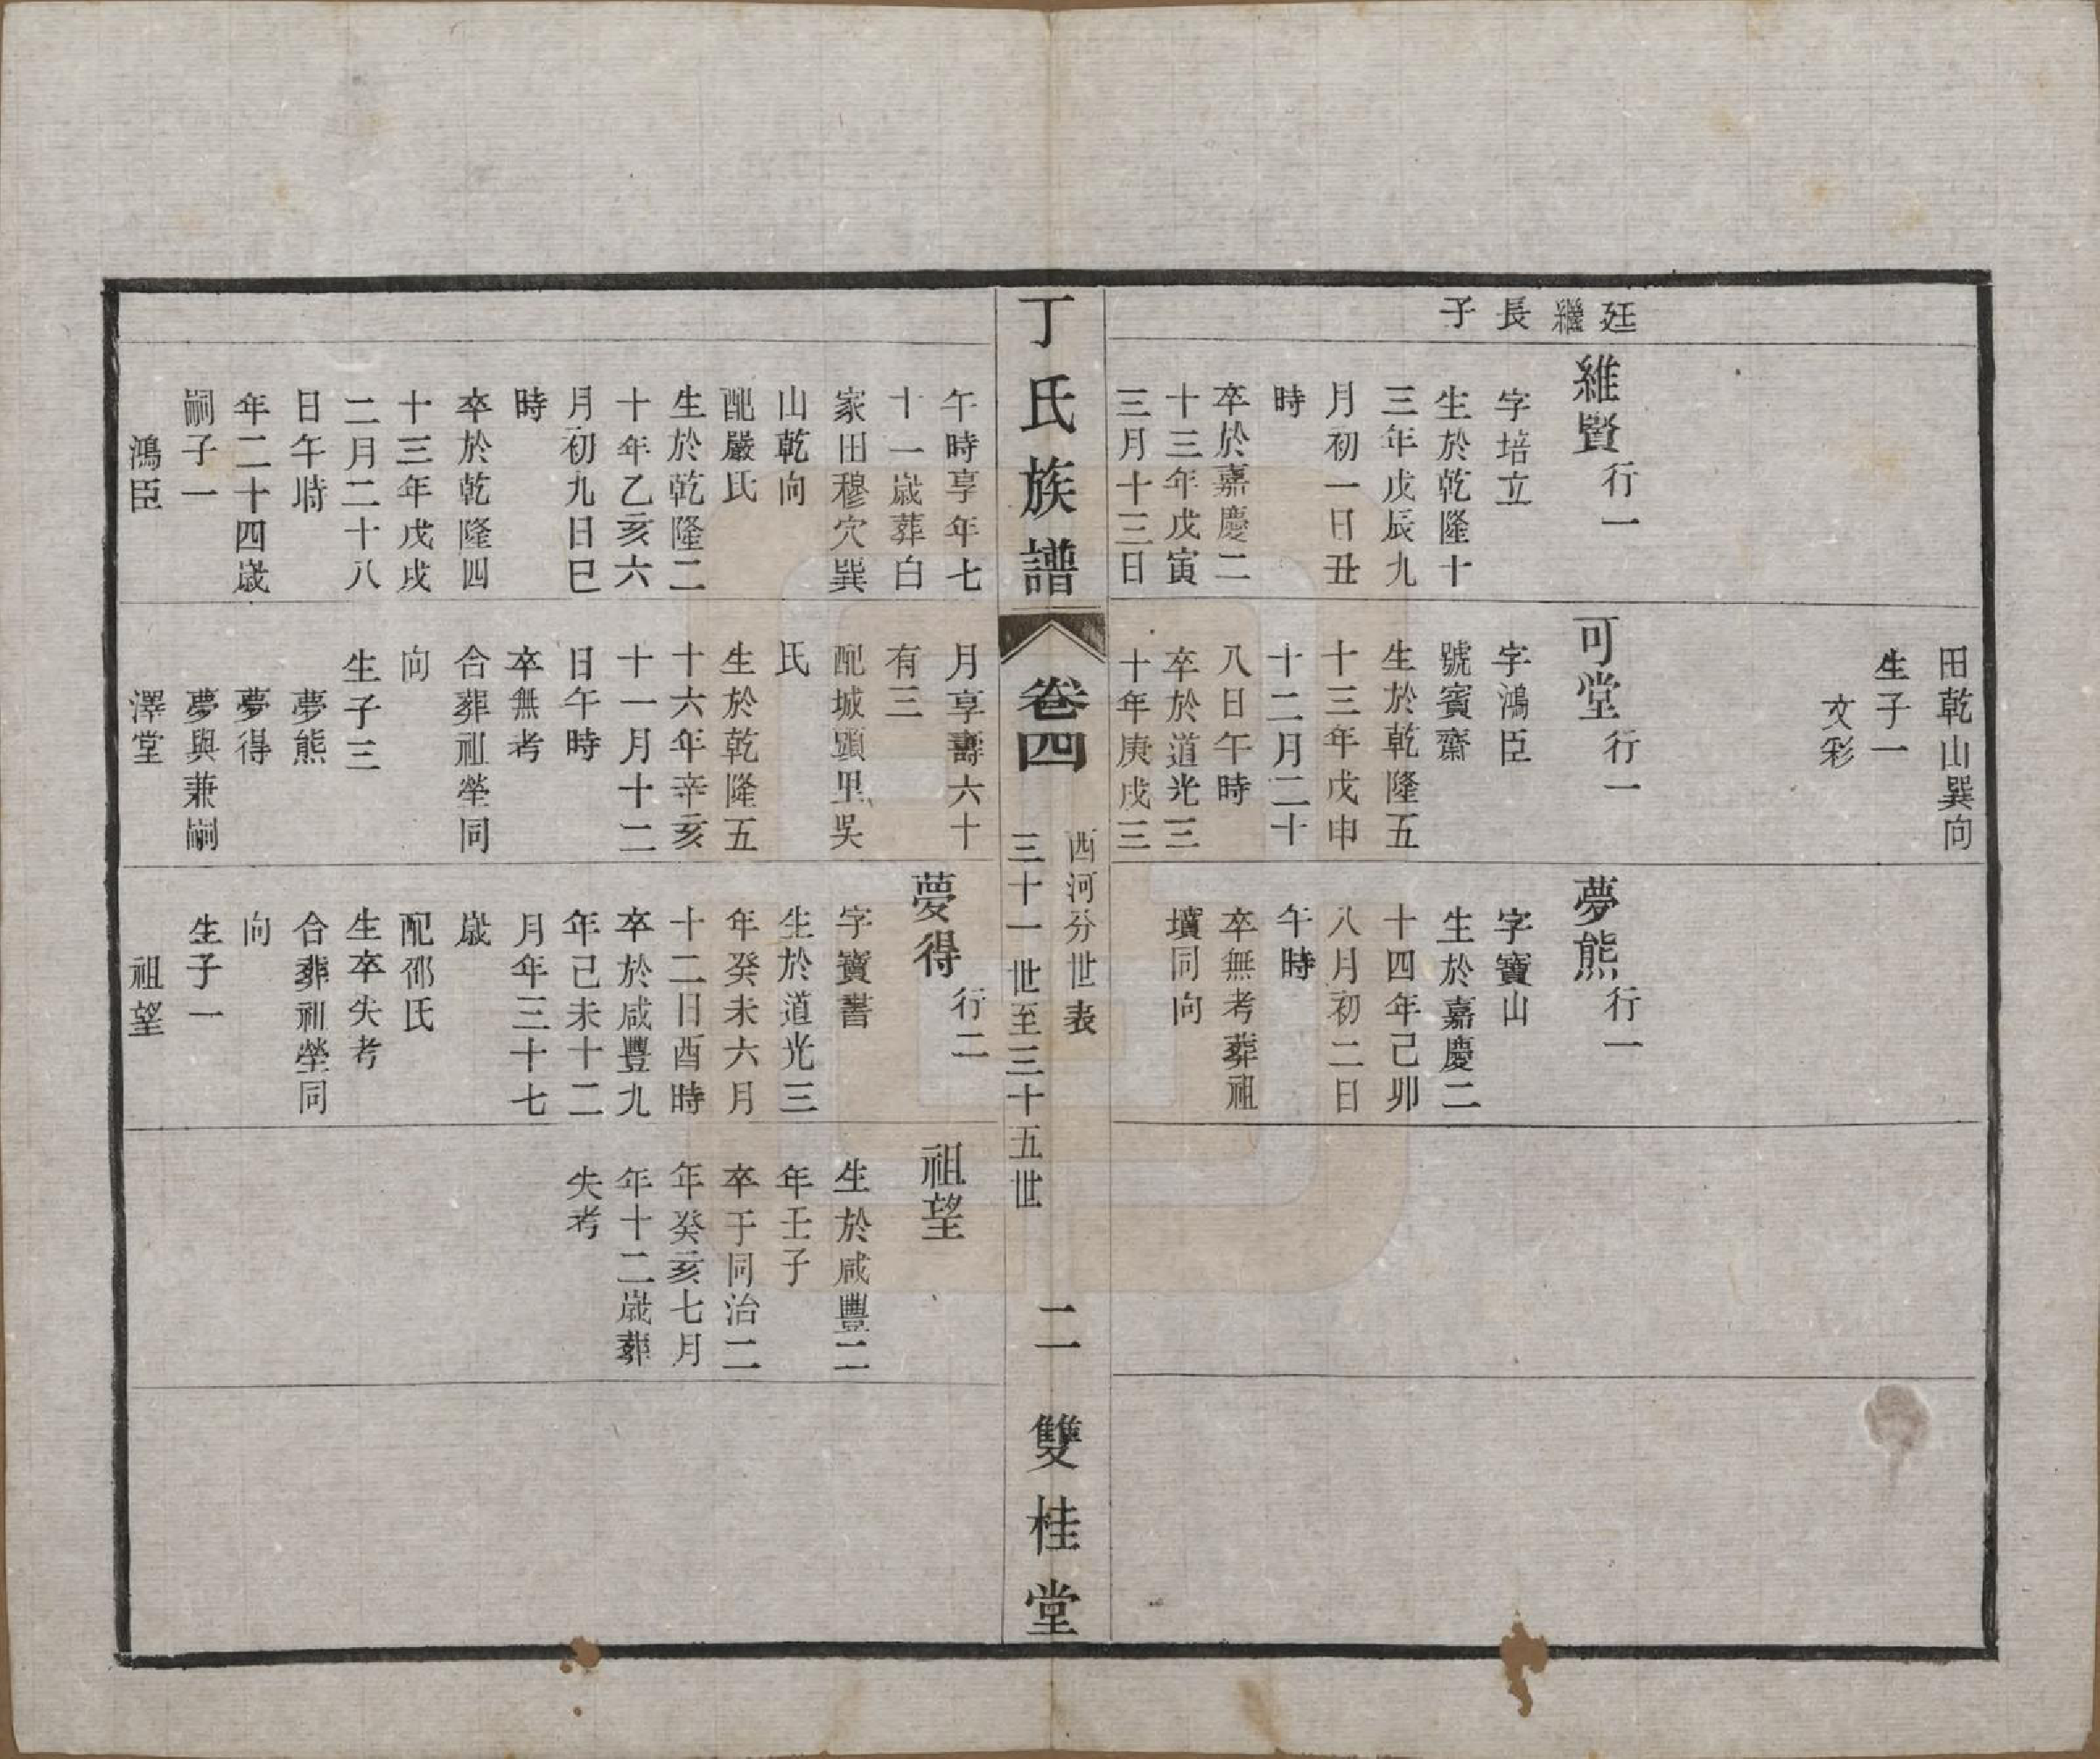 廷
繼
長
子
維賢行一
字培立
生於乾隆十
三年戊辰九
月初一日丑
時
卒於嘉慶二
十三年戊寅
三月十三日
田乾山巽向
生子一
文彩
可堂行一
字鴻臣
號賓齋
生於乾隆五
十三年戊申
十二月二十
八日午時
卒於道光三
十年庚戌三
夢熊行一
字寶山
生於嘉慶二
十四年己卯
八月初二日
午時
卒無考葬祖
墳同向
丁氏族譜
卷四
西河分世表
三十一世至三十五世
二
雙桂堂
午時享年七
十一歲葬白
家田穆穴巽
山乾向
配嚴氏
生於乾隆二
十年乙亥六
月初九日巳
時
卒於乾隆四
十三年戊戌
二月二十八
日午時
年二十四歲
嗣子一
鴻臣
月享壽六十
有三
配城顕里吳
氏
生於乾隆五
十六年辛亥
十一月十二
日午時
卒無考
合葬祖塋同
向
生子三
夢熊
夢得
夢與兼嗣
澤堂
夢得行二
字寶書
生於道光三
年癸未六月
十二日酉時
卒於咸豐九
年己未十二
月年三十七
歲
配邵氏
生卒失考
合葬祖塋同
向
生子一
祖望
祖望
生於咸豐二
年壬子
卒于同治二
年癸亥七月
年十二歲葬
失考